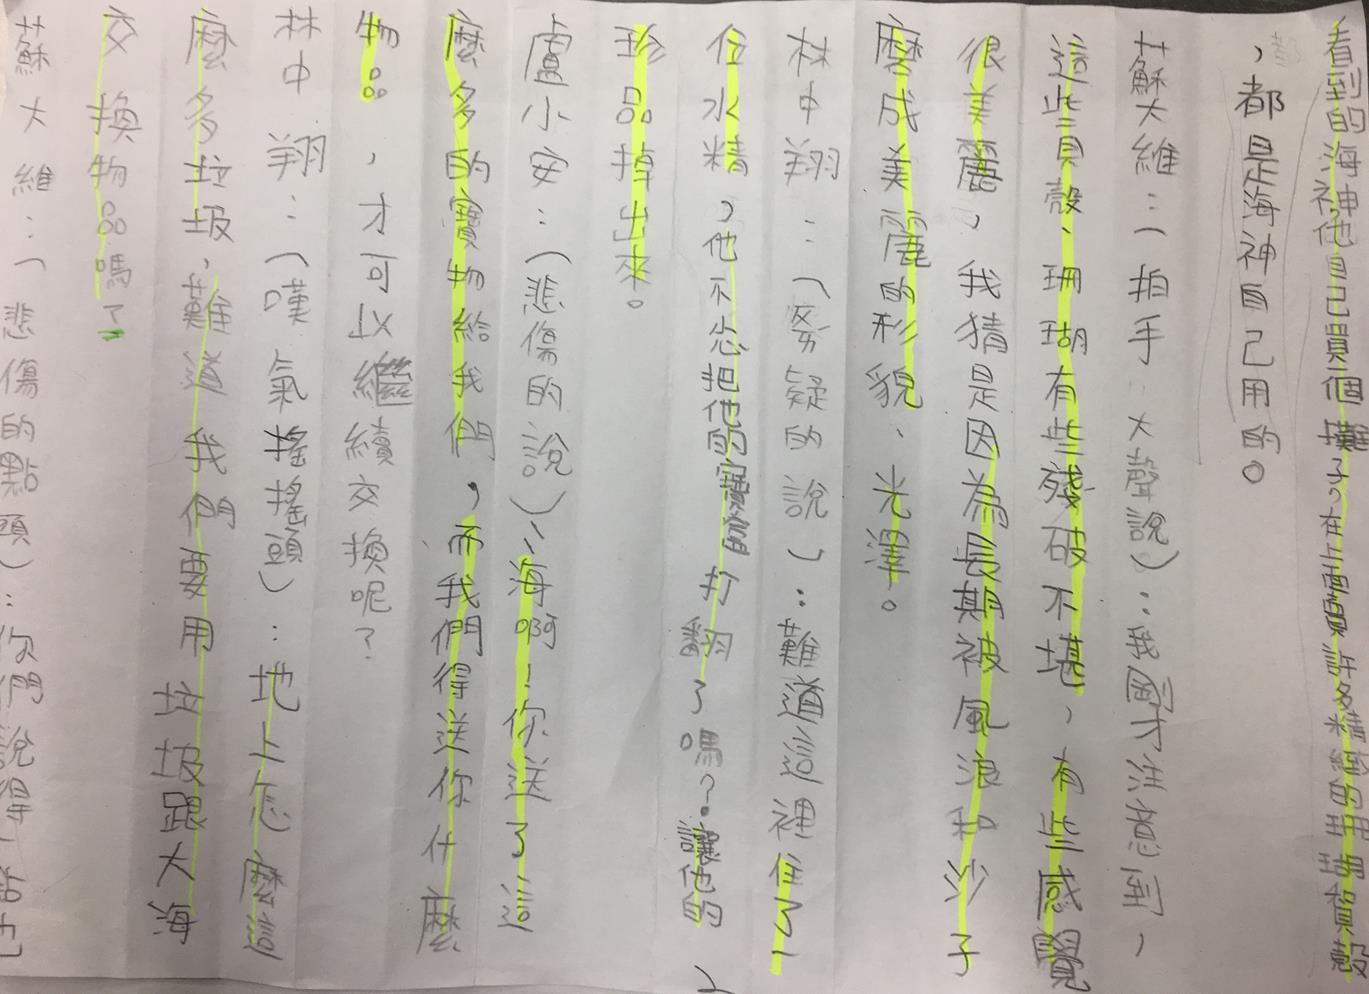 看到的海神他自己買個攤子，在上面賣許多精緻的珊瑚貝殼
，都是海神自己用的。
蘇大維：（拍手：大聲說）：我剛才注意到，
這些貝殼、珊瑚有些殘破不堪，有些感覺
很美麗，我猜是因為長期被風浪和沙子
磨成美麗的形貌、光澤。
林中翔：（疑的說）：難道這裡住了一
位水精，他不小心把他的寶打翻了嗎？讓他的
珍品掉出來。
盧小安：（悲傷的說）：海啊！你送了這
麼多的寶物給我們，而我們得送你什麼
物品，才可以繼續交換呢？
林中翔：（嘆氣搖搖頭）：地上怎麼這
麼多垃圾，難道我們要用垃圾跟大海
交換物品嗎？
蘇大維：（悲傷的點頭）：你們說得